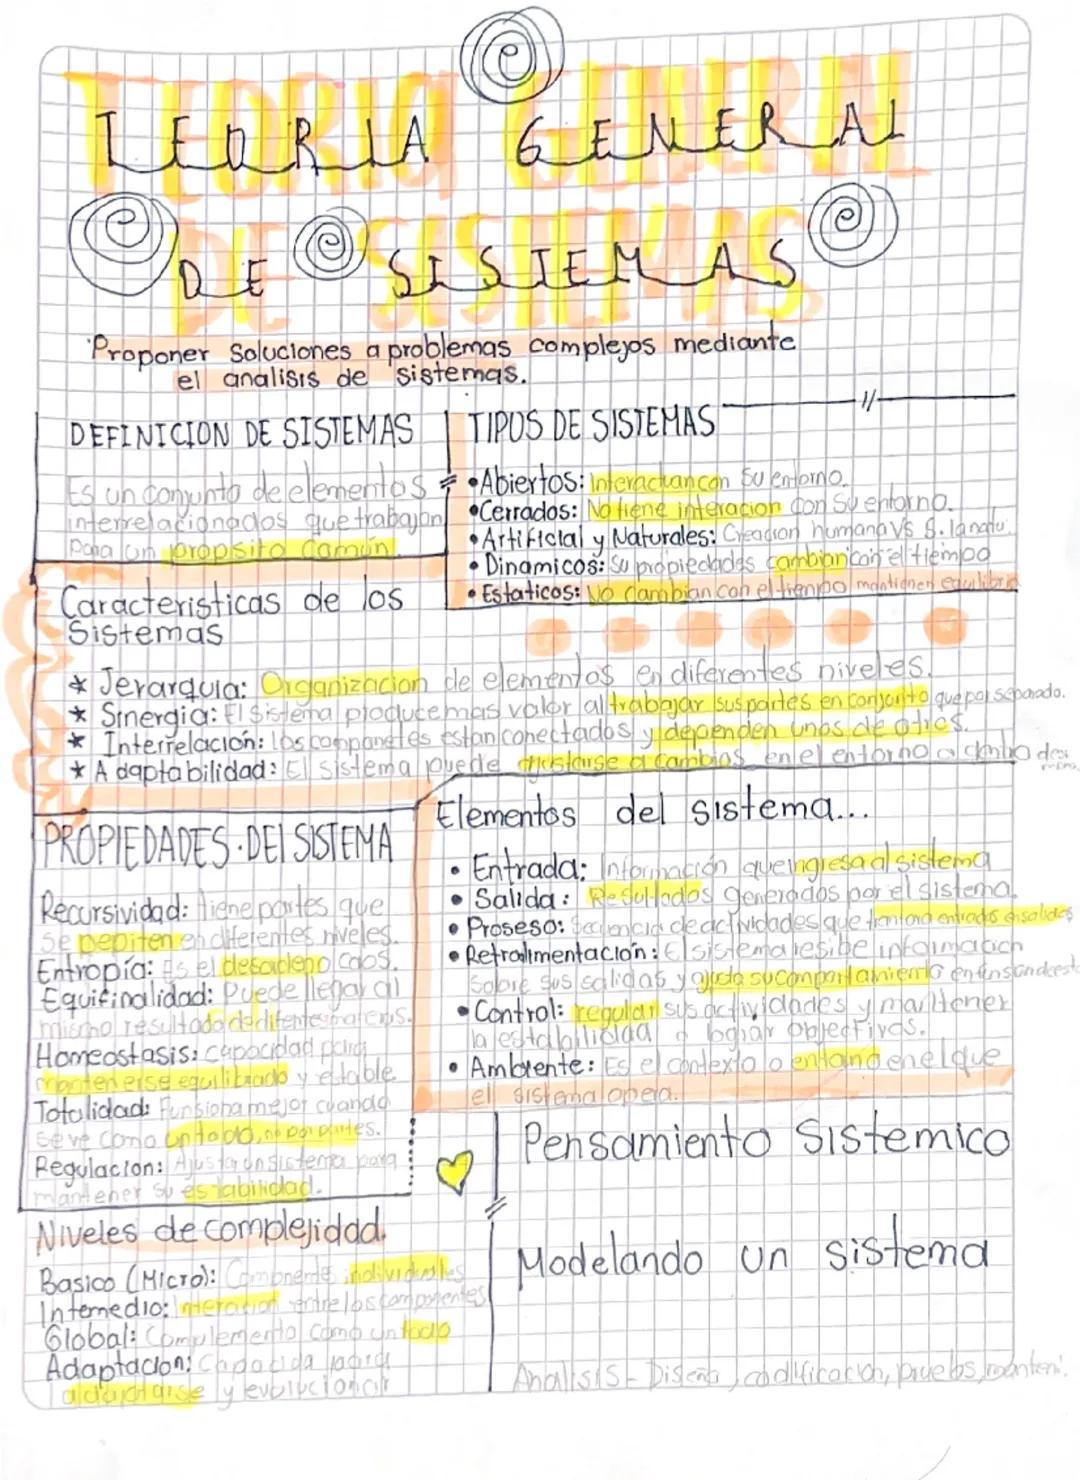 TEORIA GENERAL
DE SISTEMAS
Proponer Soluciones a problemas complejos mediante
el analisis de sistemas.
DEFINICION DE SISTEMAS
Es un conjunto de elementos
interrelacionados que trabajan
para un propsito Comun.
TIPOS DE SISTEMAS
• Abiertos: Interactuan con Su entorno.
• Cerrados: No tiene interacion con Su entorno.
• Artificial y Naturales: Creacion humana Vs S. la natu.
• Dinamicos: Su propiedades cambian con el tiempo
• Estaticos: No Cambian con el tienpo mantienen equilibrio
Caracteristicas de los
Sistemas
* Jerarquia: Organizacion de elementos en diferentes niveles.
* Sinergia: El Sistema produce mas valor al trabajar sus partes en conjunto que por separado.
* Interrelación: los componetes estan conectados y dependen unos de otros.
* Adaptabilidad: El sistema puede ajustarse a cambios en el entorno o dentro
PROPIEDADES DEl SISTEMA
Recursividad: tiene partes que
se pepiten en diferentes niveles.
Entropía: Es el desorden o caos.
Equifinalidad: Puede llegar al
mismo resultado de
Homeostasis: capacidad para
mantenerse equilibrado y estable
Totalidad: Funsiona mejor cuando
se ve como un todo, no por partes.
Regulacion: Ajusta un sistema para
mantener su estabilidad.
Elementos del sistema...
• Entrada: Información que ingresa al sistema
• Salida: Resultados generados por el sistema.
• Proseso: Seciencia de actividades que entradas en salidas
• Retroalimentacion: El sistema resibe informacion
sobre sus salidas y ajusta su comportamiento en
• Control: regular sus actividades y mantener
la estabilidad o lograr objectivos.
• Ambiente: Es el contexto o entorno en el que
el sistema opera.
Pensamiento Sistemico
Modelando un sistema
Analisis - Diseño, codificacion, pruebs, manteni.
Niveles de complejidad.
Basico (Micro): Componente individuales
Internedio: Interacion entre los componentes
Global: Complemento como un todo
Adaptacion: Capacida para
adaptarse y evolucionar